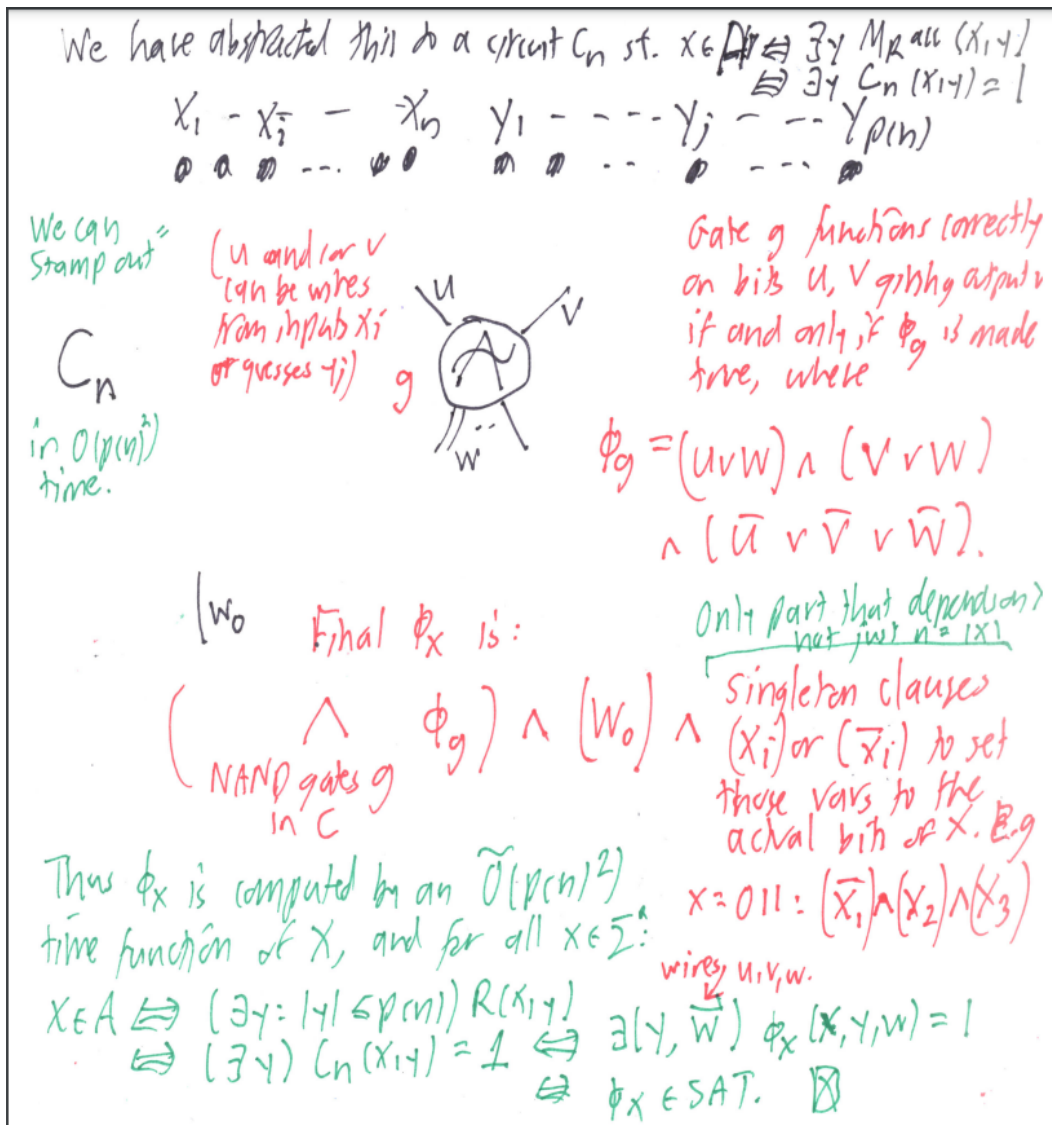 We have abstracted this to a circuit Cn st. x∈A ⇔ ∃y MR acc (x,y)
⇔ ∃y Cn (x,y) = 1
X1 - Xi - Xn Y1 - - - - Yj - - - Yp(n)
We can "
stamp out
Cn
in O(p(n)²)
time.
(u and/or v
can be wires
from inputs xi
or guesses yj)
g
u
v
w
Gate g functions correctly
on bits u, v giving output w
if and only if ϕg is made
true, where
ϕg = (u∨w) ∧ (v∨w)
∧ (ū ∨ v̄ ∨ w̄).
w0
Final ϕx is:
Only part that depends on x
not just n = |x|
( ∧ ϕg ) ∧ (w0) ∧
NAND gates g
in C
singleton clauses
(xi) or (x̄i) to set
those vars to the
actual bits of x. E.g
x=011: (x̄1)∧(x2)∧(x3)
Thus ϕx is computed by an Õ(p(n)²)
time function of x, and for all x∈Σ*:
wires, u,v,w.
x∈A ⇔ (∃y: |y| ≤ p(n)) R(x,y)
⇔ (∃y) Cn (x,y) = 1 ⇔ ∃(y, w⃗) ϕx (x,y,w) = 1
⇔ ϕx ∈ SAT. ☒